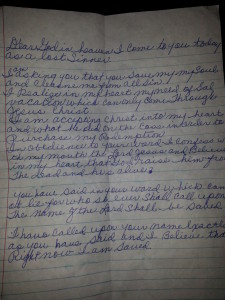 Dear God in heaven I come to you today
as a lost sinner
I am asking you that you save my my Soul
and cleanse me from all sin I
I Realize in my heart my need of Sal
vacation which can only come Through
Jesus Christ
I am accepting christ into my heart
and what He did on the Cross in order to
Purchase my Redemption
In obedience to your word I confess wi
th my mouth the Lord Jesus and Believe
in my heart that God Praise Him from
The dead and his alive
You have said in your word which can
ot lie for who so ever Shall Call upon
The name of the Lord Shall be Saved
I have Called upon your name exactly
as you have said and I Believe that
Right now I am Saved